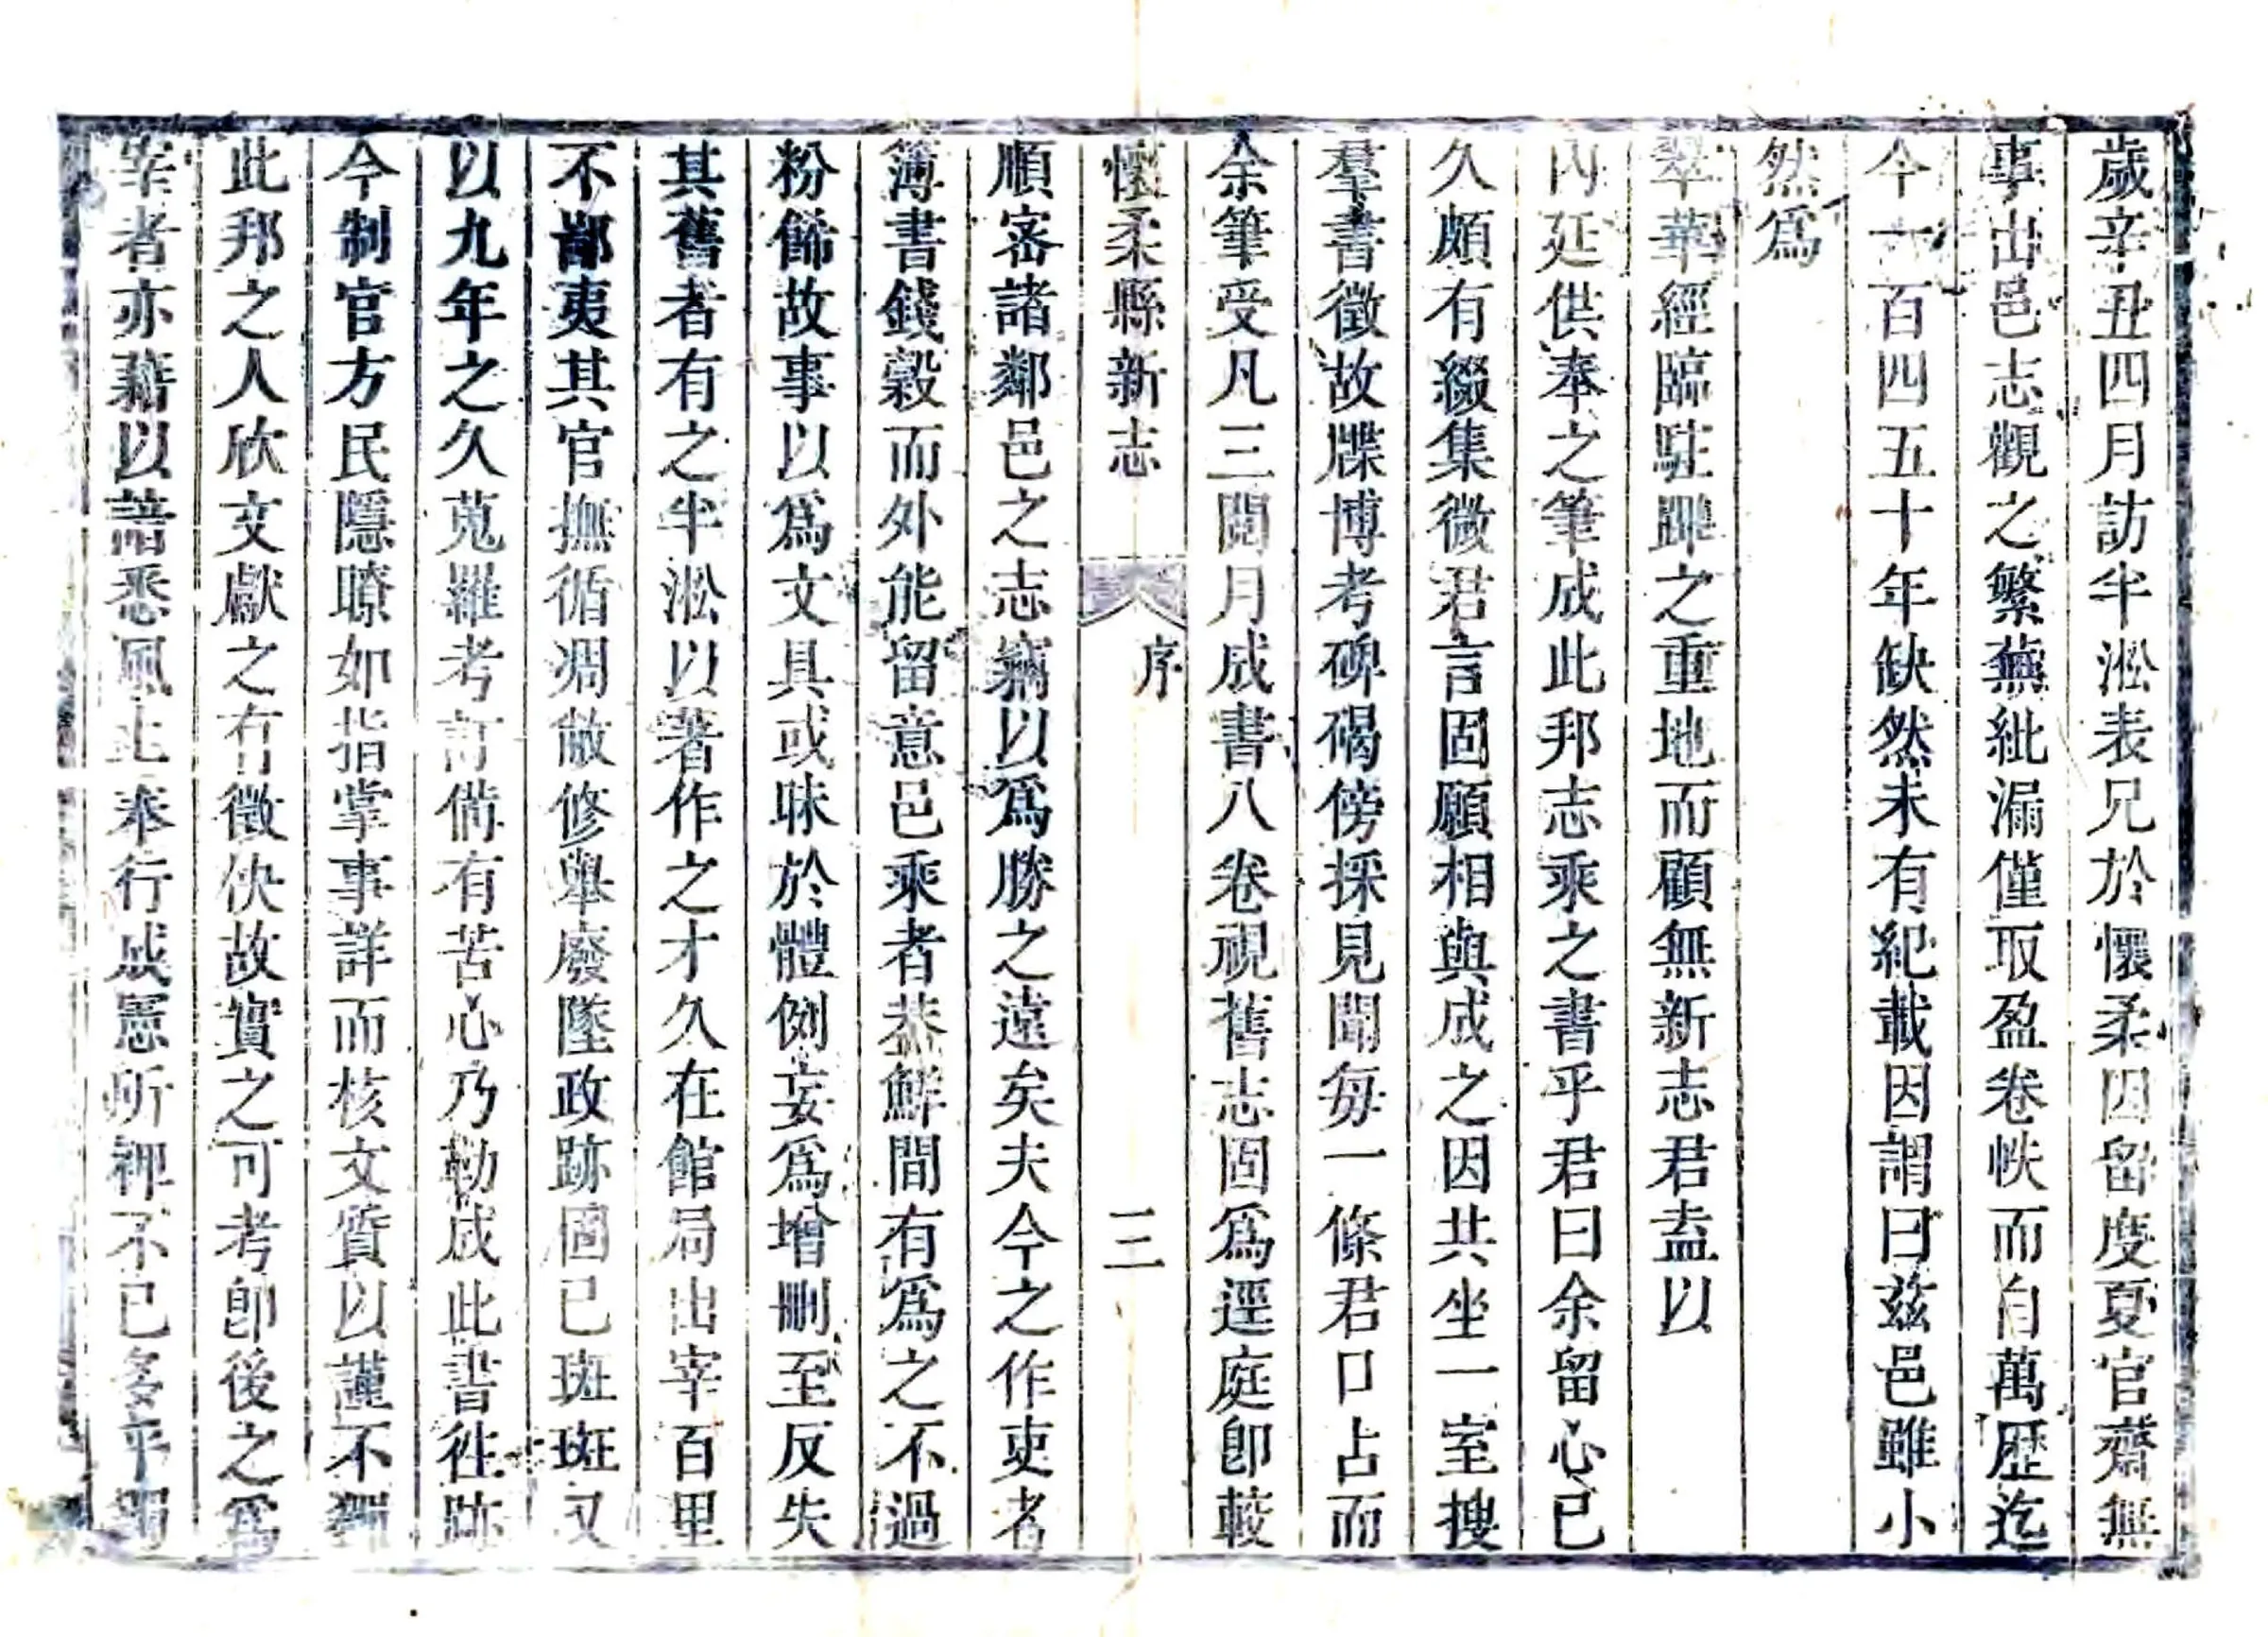 歲辛丑四月訪半淞表兄於懷柔因留度夏官齋無
事出邑志觀之繁蕪紕漏僅取盈卷帙而自萬歷迄
今一百四五十年缺然未有紀載因謂曰茲邑雖小
然爲
翠華經臨駐蹕之重地而顧無新志君盍以
內廷供奉之筆成此邦志乘之書乎君曰余留心已
久頗有綴集微君言固願相與成之因共坐一室搜
羣書徵故牒博考碑碣傍採見聞每一條君口占而
余筆受凡三閱月成書八卷視舊志固爲逕庭卽較
懷柔縣新志 序 三
順審諸鄰邑之志竊以爲勝之遠矣夫今之作吏者
簿書錢穀而外能留意邑乘者恭鮮間有爲之不過
粉餙故事以爲文具或昧於體例妄爲增刪至反失
其舊者有之半淞以著作之才久在館局出宰百里
不鄙夷其官撫循凋敝修舉廢墜政跡固已斑斑又
以九年之久蒐羅考訂備有苦心乃勒成此書徃跡
今制官方民隱瞭如指掌事詳而核文質以謹不獨
此邦之人欣文獻之有徵佚故實之可考卽後之爲
宰者亦藉以諳悉風土奉行成憲所裨不已多乎獨